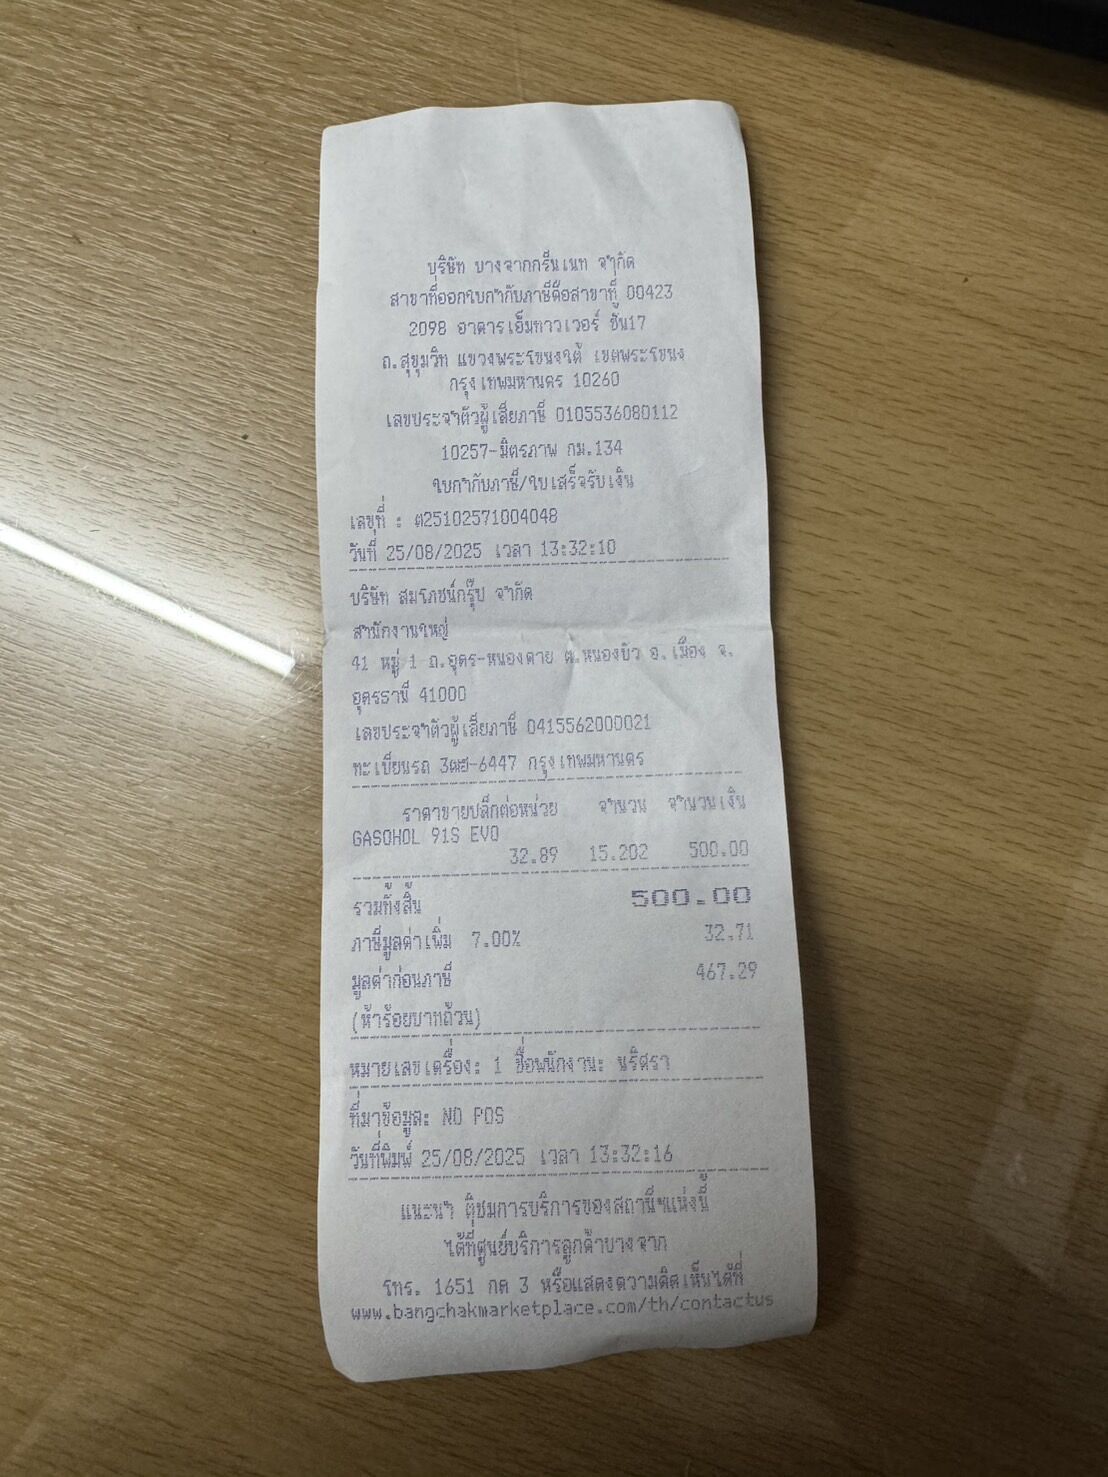 บริษัท บางจากกรีนเนท จำกัด
สาขาที่ออกใบกำกับภาษีคือสาขาที่ 00423
2098 อาคารเอ็มทาวเวอร์ ชั้น17
ถ.สุขุมวิท แขวงพระโขนงใต้ เขตพระโขนง
กรุงเทพมหานคร 10260
เลขประจำตัวผู้เสียภาษี 0105536080112
10257-มิตรภาพ กม.134
ใบกำกับภาษี/ใบเสร็จรับเงิน
เลขที่ : ต25102571004048
วันที่ 25/08/2025 เวลา 13:32:10
บริษัท สมโภชน์กรุ๊ป จำกัด
สำนักงานใหญ่
41 หมู่ 1 ถ.อุดร-หนองคาย ต.หนองบัว อ.เมือง จ.
อุดรธานี 41000
เลขประจำตัวผู้เสียภาษี 0415562000021
ทะเบียนรถ -6447 กรุงเทพมหานคร
ราคาขายปลีกต่อหน่วย จำนวน จำนวนเงิน
GASOHOL 91S EVO
32.89 15.202 500.00
รวมทั้งสิ้น 500.00
ภาษีมูลค่าเพิ่ม 7.00% 32.71
มูลค่าก่อนภาษี 467.29
(ห้าร้อยบาทถ้วน)
หมายเลขเครื่อง: 1 ชื่อพนักงาน: นริศรา
ที่มาข้อมูล: NO POS
วันที่พิมพ์ 25/08/2025 เวลา 13:32:16
แนะนำ ติชมการบริการของสถานีฯแห่งนี้
ได้ที่ศูนย์บริการลูกค้าบางจาก
โทร. 1651 กด 3 หรือแสดงความคิดเห็นได้ที่
www.bangchakmarketplace.com/th/contactus